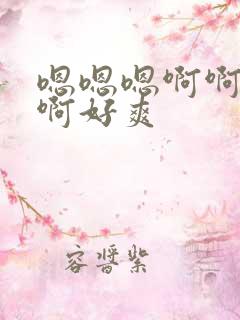 嗯嗯嗯啊啊
啊好爽
容誾紫